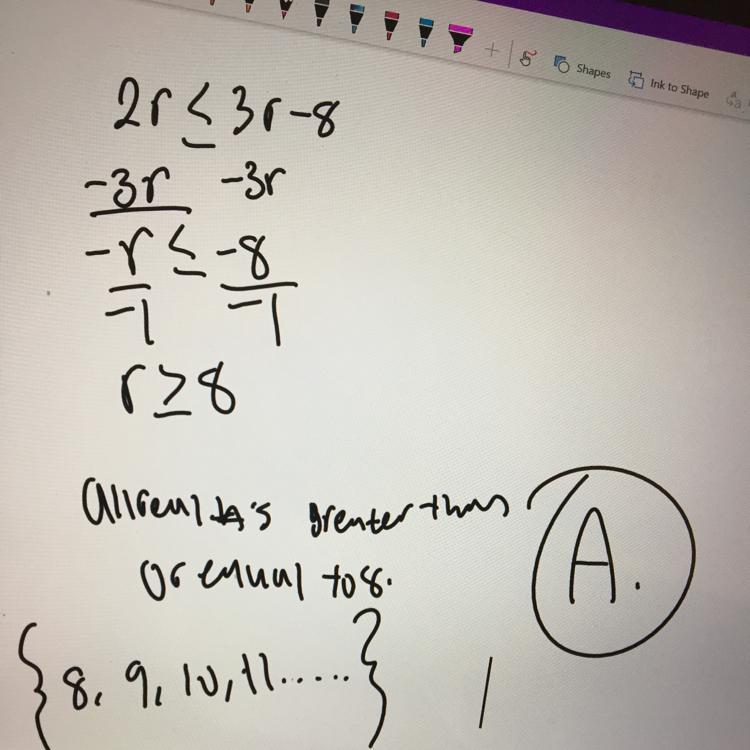 Shapes
Ink to Shape
2r ≤ 3r - 8
-3r -3r
-r ≤ -8
-1 -1
r ≥ 8
All real #'s greater than
or equal to 8.
A.
{8, 9, 10, 11.....}